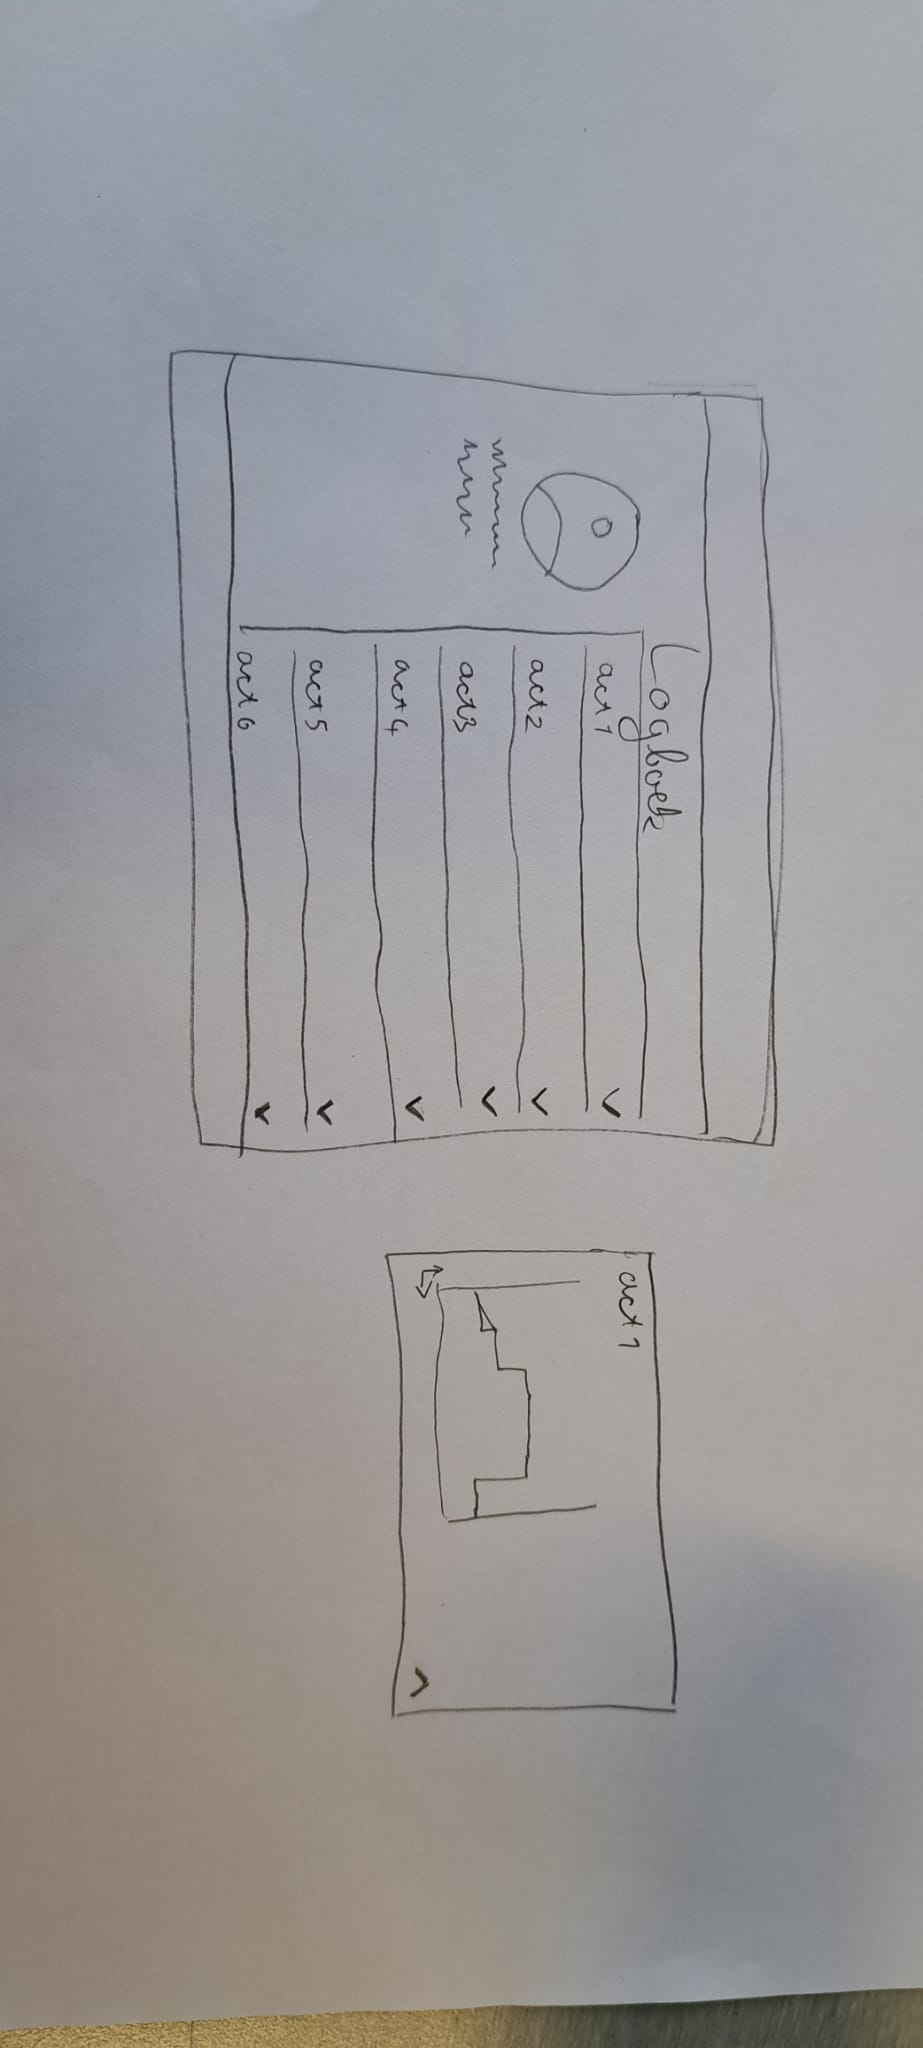 Logboek
act 1
act 2
act 3
act 4
act 5
act 6
act 1